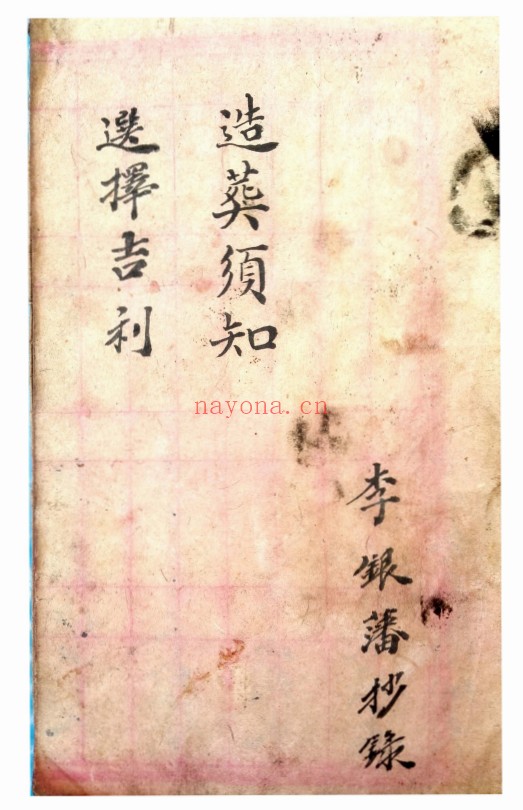 李銀藩抄錄
造葬須知
選擇吉利
nayona.cn